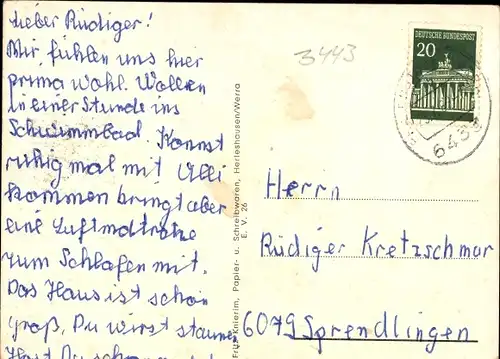 Lieber Rüdiger!
Mir fühlen uns hier
prima wohl. Wollen
in einer Stunde ins
Schwimmbad. Kannst
ruhig mal mit Ulli
kommen bringt aber
eine Luftmatratze
zum Schlafen mit.
Das Haus ist schön
groß. Du wirst staune
Hast Du schon
3443
DEUTSCHE BUNDESPOST
20
643
Papier- u. Schreibwaren, Herleshausen/Werra
E. V. 26
Herrn
Rüdiger Kretzschmar
6079 Sprendlingen